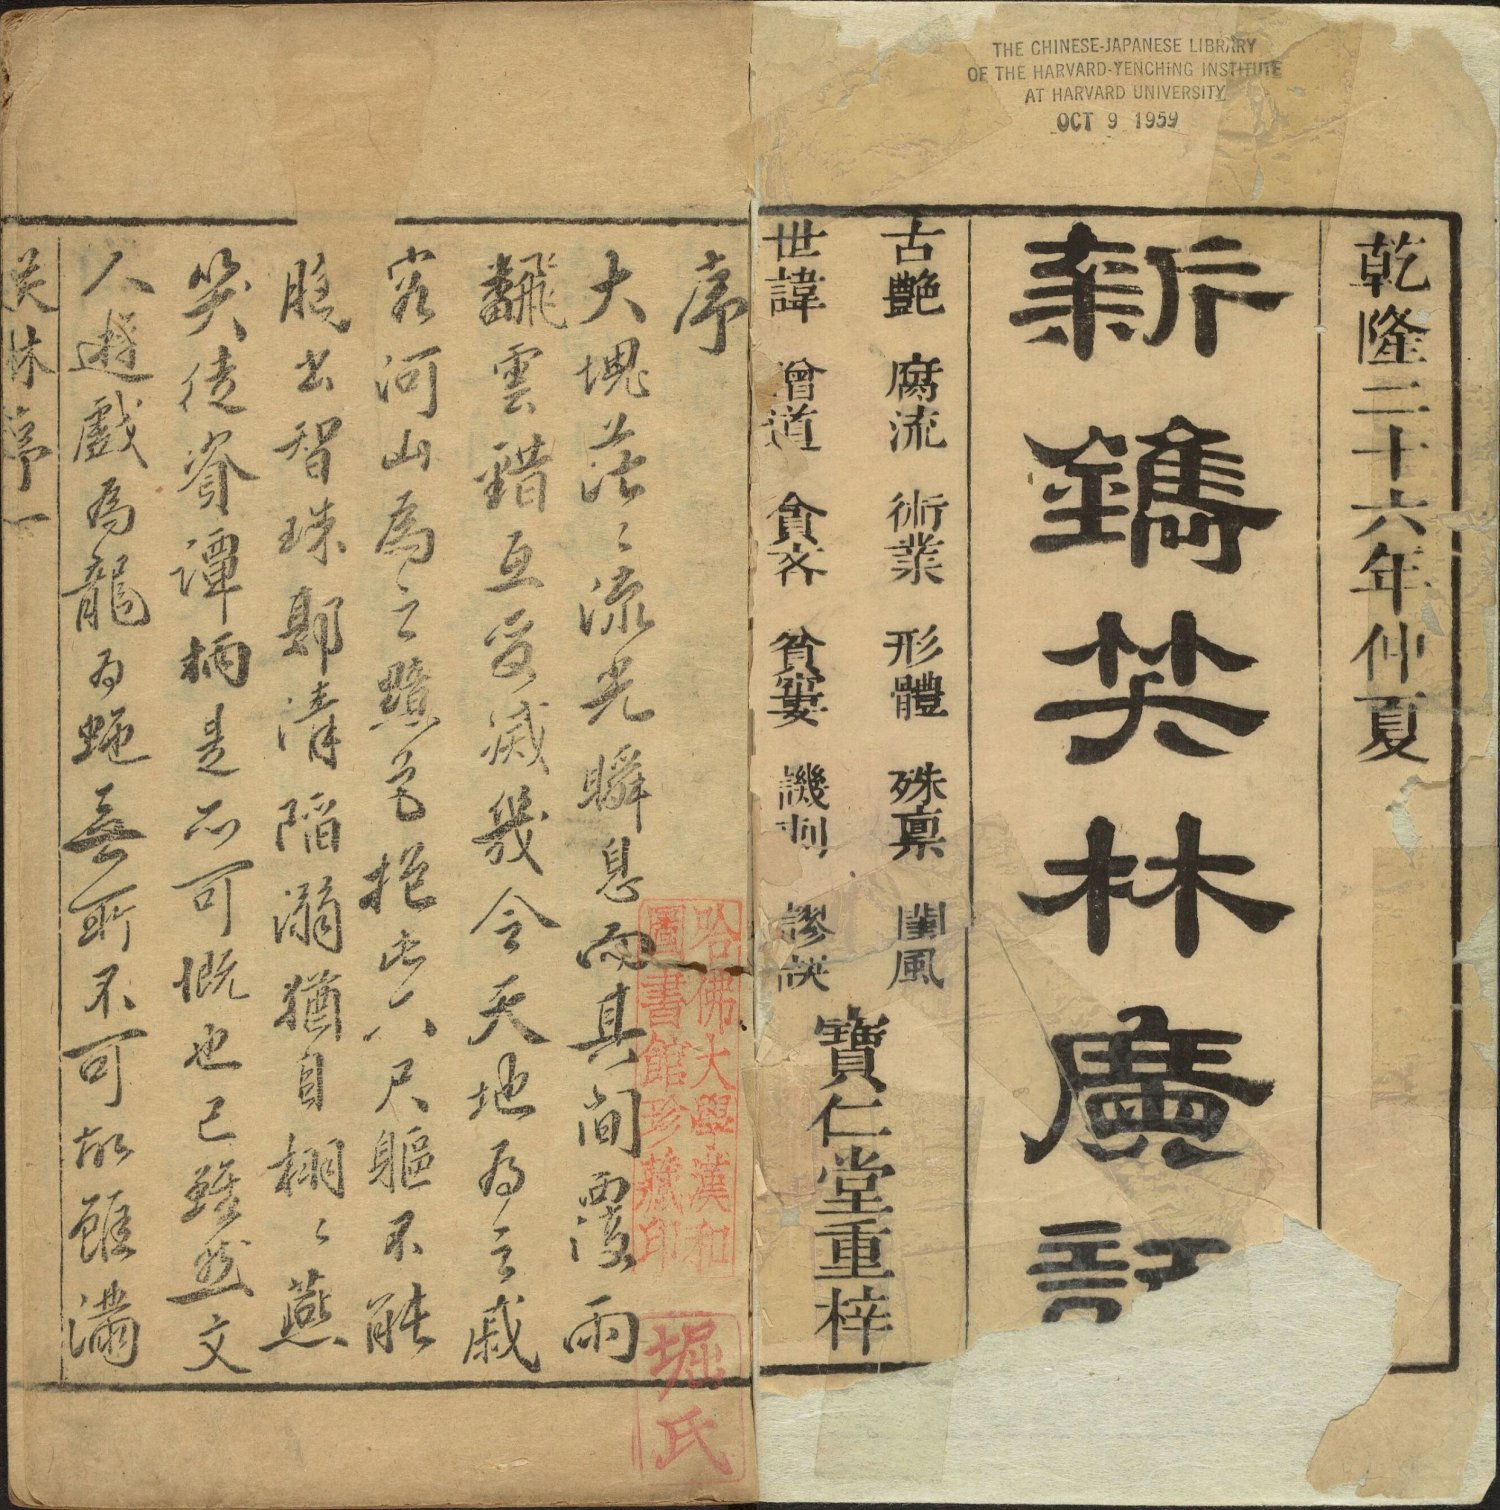 THE CHINESE-JAPANESE LIBRARY
OF THE HARVARD-YENCHING INSTITUTE
AT HARVARD UNIVERSITY
OCT 9 1959
乾隆二十六年仲夏
新鐫笑林廣記
古艶 腐流 術業 形體 殊禀 閨風
世諱 僧道 貪吝 貧窶 譏刺 謬誤
寶仁堂重梓
序
大塊茫〻流光瞬息而其間覆雨
翻雲錯互变滅幾令天地為之戚
容河山為之顰色抱此六尺軀不能
脫出智珠郵清陷溺猶自栩〻燕
笑徒資譚柄是而可慨也已雖然文
人遊戲為龍為蠅無所不可故雖潚
笑林序 一
哈佛大學漢和
圖書館珍藏印
堀氏